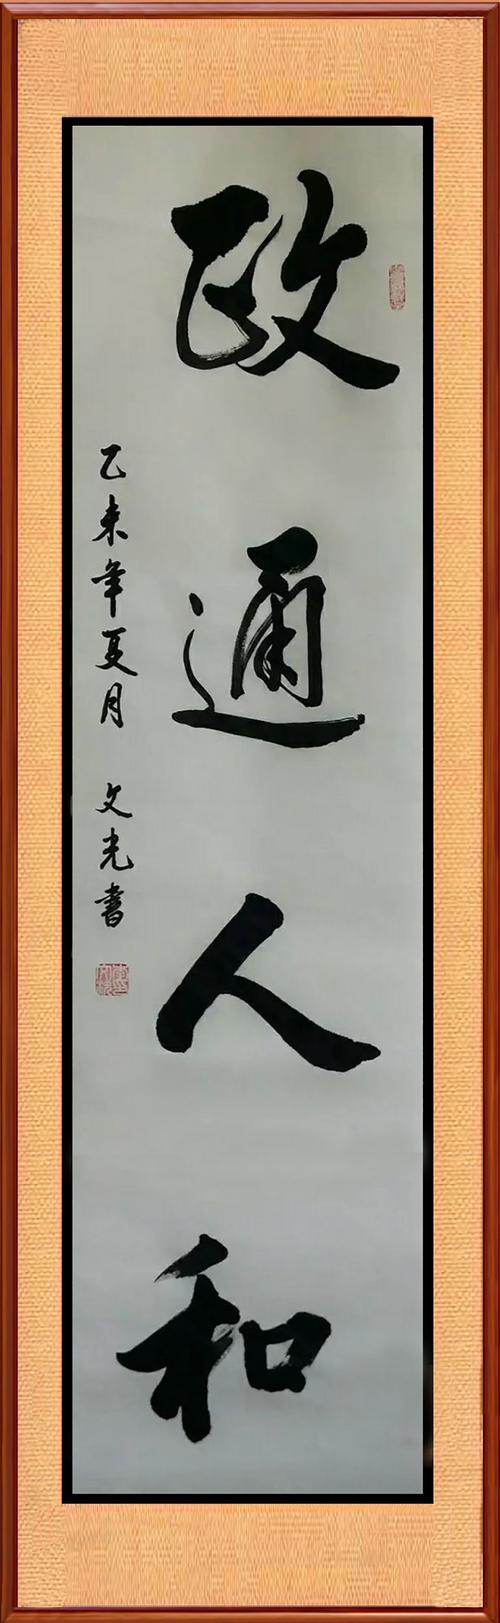 政通人和
乙未年夏月 文光书